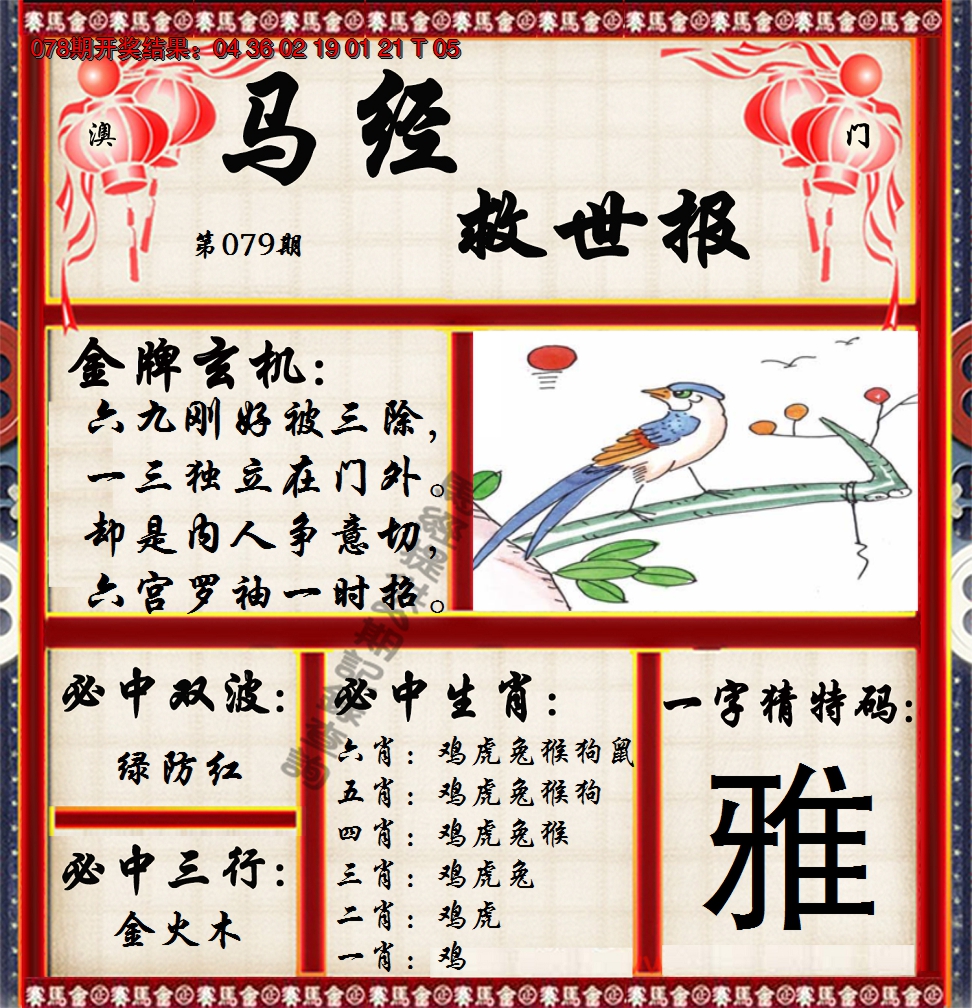 078期开奖结果：04 36 02 19 01 21 T 05
澳
门
马经
救世报
第079期
金牌玄机：
六九刚好被三除，
一三独立在门外。
却是内人争意切，
六宫罗袖一时招。
必中双波：
绿防红
必中三行：
金火木
必中生肖：
六肖：鸡虎兔猴狗鼠
五肖：鸡虎兔猴狗
四肖：鸡虎兔猴
三肖：鸡虎兔
二肖：鸡虎
一肖：鸡
一字猜特码：
雅